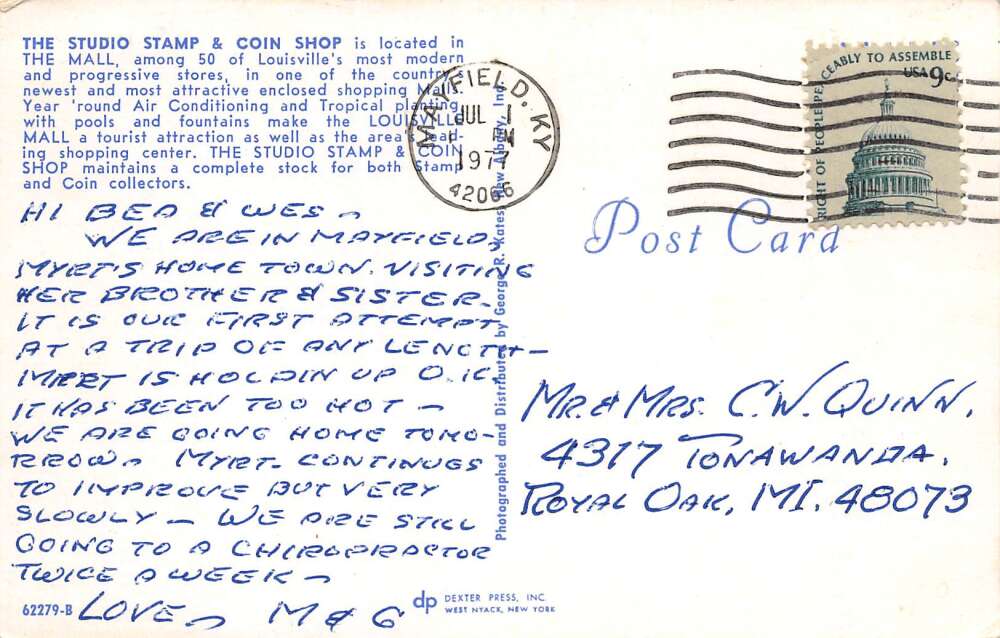 THE STUDIO STAMP & COIN SHOP is located in
THE MALL, among 50 of Louisville's most modern
and progressive stores, in one of the country's
newest and most attractive enclosed shopping Malls.
Year 'round Air Conditioning and Tropical planting
with pools and fountains make the LOUISVILLE
MALL a tourist attraction as well as the area's lead-
ing shopping center. THE STUDIO STAMP & COIN
SHOP maintains a complete stock for both Stamp
and Coin collectors.
MAYFIELD, KY
JUL 1
PM
1977
42066
RIGHT OF PEOPLE PEACEABLY TO ASSEMBLE
USA 9c
Post Card
HI BEA & WES –
WE ARE IN MAYFIELD,
MYRT'S HOME TOWN. VISITING
HER BROTHER & SISTER.
IT IS OUR FIRST ATTEMPT
AT A TRIP OF ANY LENGTH –
MYRT IS HOLDIN UP O.K.
IT HAS BEEN TOO HOT –
WE ARE GOING HOME TOMO-
RROW. MYRT. CONTINUES
TO IMPROVE BUT VERY
SLOWLY – WE ARE STILL
GOING TO A CHIROPRACTOR
TWICE A WEEK –
LOVE, M & G
Photographed and Distributed by George R. Kates, New Albany, Ind.
MR. & MRS. C.W. QUINN.
4317 TONAWANDA.
ROYAL OAK, MI. 48073
62279-B
dp DEXTER PRESS, INC.
WEST NYACK, NEW YORK